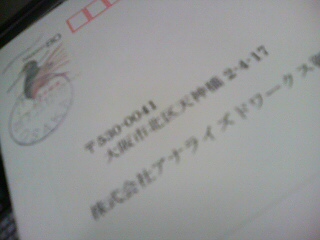 80
〒530-0041
大阪市北区天神橋 2-4-17
株式会社アナライズドワークス